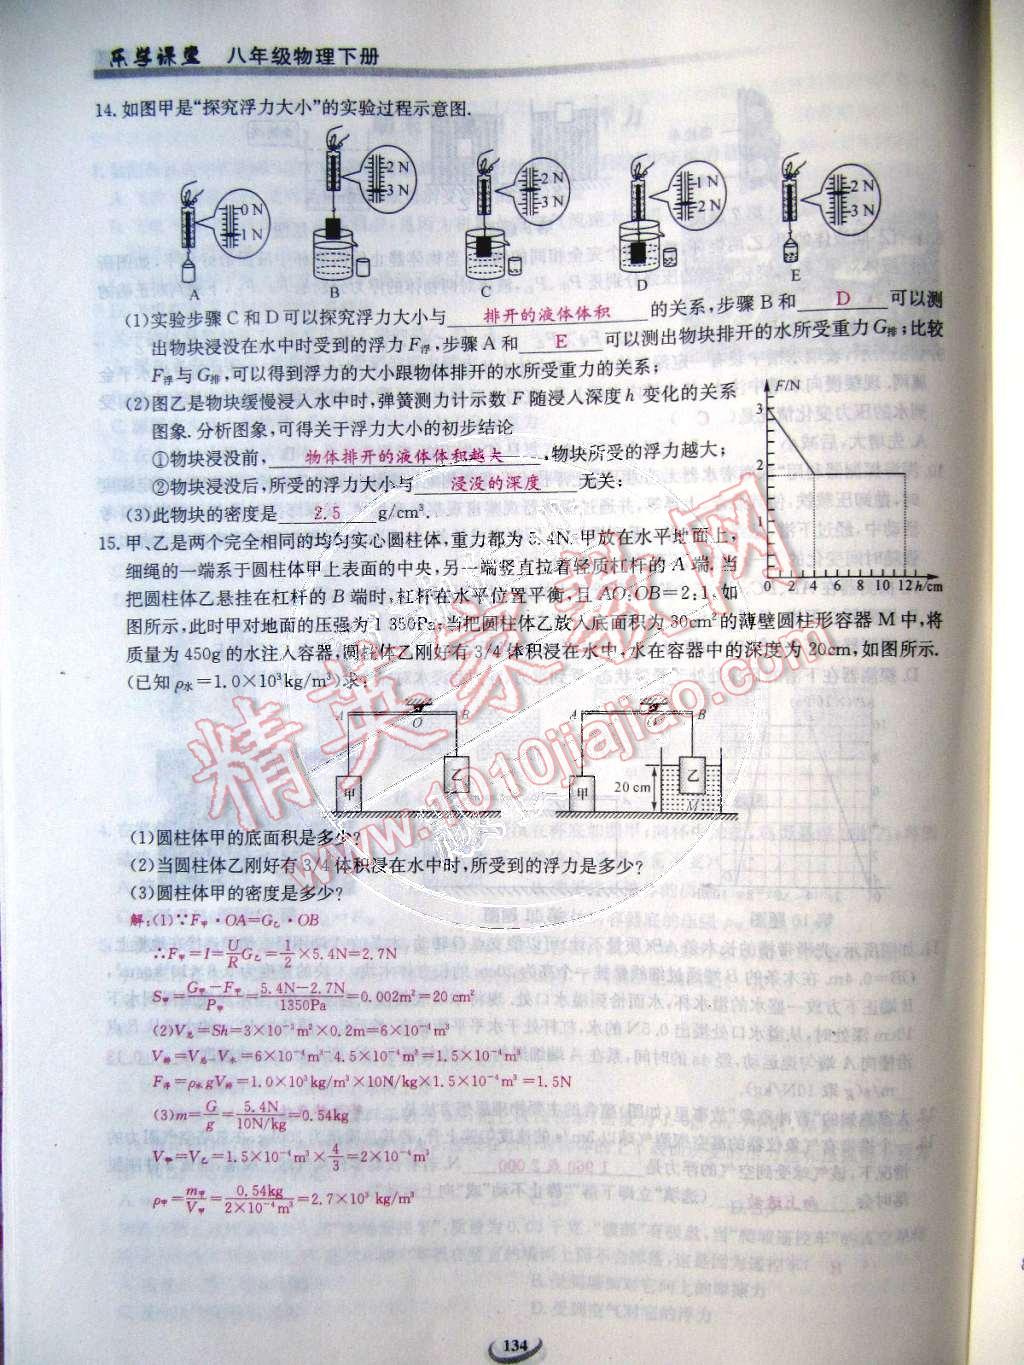 乐学课堂 八年级物理下册
14.如图甲是“探究浮力大小”的实验过程示意图.
0 N
1 N
2 N
3 N
2 N
3 N
1 N
2 N
2 N
3 N
A
B
C
D
E
(1)实验步骤 C 和 D 可以探究浮力大小与 排开的液体体积 的关系,步骤 B 和 D 可以测
出物块浸没在水中时受到的浮力 F浮,步骤 A 和 E 可以测出物块排开的水所受重力 G排;比较
F浮与 G排,可以得到浮力的大小跟物体排开的水所受重力的关系;
(2)图乙是物块缓慢浸入水中时,弹簧测力计示数 F 随浸入深度 h 变化的关系
图象.分析图象,可得关于浮力大小的初步结论
①物块浸没前, 物体排开的液体体积越大 ,物块所受的浮力越大;
②物块浸没后,所受的浮力大小与 浸没的深度 无关;
(3)此物块的密度是 2.5 g/cm³.
F/N
3
2
1
0 2 4 6 8 10 12 h/cm
15.甲、乙是两个完全相同的均匀实心圆柱体,重力都为 5.4N.甲放在水平地面上,
细绳的一端系于圆柱体甲上表面的中央,另一端竖直拉着轻质杠杆的 A 端.当
把圆柱体乙悬挂在杠杆的 B 端时,杠杆在水平位置平衡,且 AO:OB=2:1,如
图所示,此时甲对地面的压强为 1 350Pa;当把圆柱体乙放入底面积为 30cm²的薄壁圆柱形容器 M 中,将
质量为 450g 的水注入容器,圆柱体乙刚好有 3/4 体积浸在水中,水在容器中的深度为 20cm,如图所示.
(已知 ρ水=1.0×10³kg/m³)求:
A O B
甲
乙
A O B
甲
20 cm
乙
M
(1)圆柱体甲的底面积是多少?
(2)当圆柱体乙刚好有 3/4 体积浸在水中时,所受到的浮力是多少?
(3)圆柱体甲的密度是多少?
解:(1)∵F甲·OA=G乙·OB
S=(G甲−F甲)/P甲=(5.4N−2.7N)/1350Pa=0.002m²=20 cm²
(2)V总=Sh=3×10⁻³m²×0.2m=6×10⁻⁴m³
F浮=ρ水gV排=1.0×10³kg/m³×10N/kg×1.5×10⁻⁴m³=1.5N
(3)m=G/g=5.4N/10N/kg=0.54kg
V甲=V乙=1.5×10⁻⁴m³×4/3=2×10⁻⁴m³
ρ甲=m甲/V甲=0.54kg/2×10⁻⁴m³=2.7×10³ kg/m³
精英家教网
www.1010jiajiao.com
134